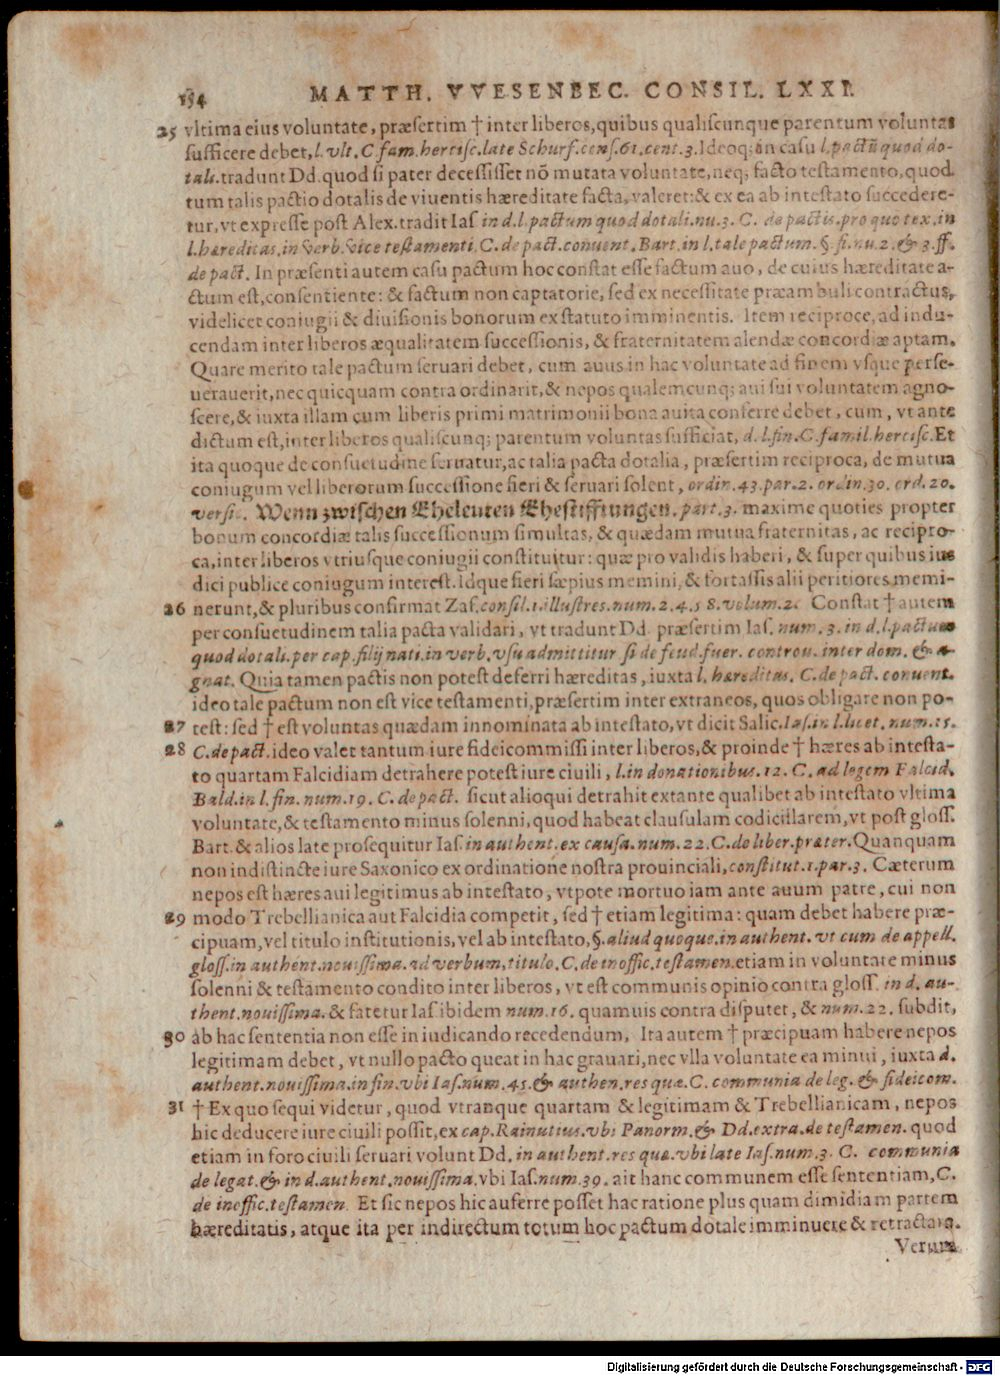 154 MATTH. VVESENBEC. CONSIL. LXXI.
25 vltima eius voluntate, præsertim † inter liberos, quibus qualiscunque parentum voluntas
sufficere debet, l. vlt. C. fam. hercisc. late Schurf. cons. 61. cent. 3. Ideoq; in casu l. pactũ quod do-
tali. tradunt Dd. quod si pater decessisset nõ mutata voluntate, neq; facto testamento, quod
tum talis pactio dotalis de viuentis hæreditate facta, valeret: & ex ea ab intestato succedere-
tur, vt expresse post Alex. tradit Ias. in d. l. pactum quod dotali. nu. 3. C. de pactis. pro quo tex. in
l. hæreditas, in verb. vice testamenti. C. de pact. conuent. Bart. in l. tale pactum. §. fi. nu. 2. & 3. ff.
de pact. In præsenti autem casu pactum hoc constat esse factum auo, de cuius hæreditate a-
ctum est, consentiente: & factum non captatorie, sed ex necessitate præambuli contractus,
videlicet coniugii & diuisionis bonorum ex statuto imminentis. Item reciproce, ad indu-
cendam inter liberos æqualitatem successionis, & fraternitatem alendæ concordiæ aptam.
Quare merito tale pactum seruari debet, cum auus in hac voluntate ad finem vsque perse-
uerauerit, nec quicquam contra ordinarit, & nepos qualemcunq; aui sui voluntatem agno-
scere, & iuxta illam cum liberis primi matrimonii bona auita conferre debet, cum, vt ante
dictum est, inter liberos qualiscunq; parentum voluntas sufficiat, d. l. fin. C. famil. hercisc. Et
ita quoque de consuetudine seruatur, ac talia pacta dotalia, præsertim reciproca, de mutua
coniugum vel liberorum successione fieri & seruari solent, ordin. 43. par. 2. ordin. 30. ord. 20.
versic. Wenn zwischen Eheleuten Ehestifftungen. part. 3. maxime quoties propter
bonum concordiæ talis successionum simultas, & quædam mutua fraternitas, ac recipro-
ca, inter liberos vtriusque coniugii constituitur: quæ pro validis haberi, & super quibus ius
dici publice coniugum interest. Idque fieri sæpius memini, & fortassis alii peritiores memi-
26 nerunt, & pluribus confirmat Zas. consil. 1. illustres. num. 2. 4. 58. volum. 2. Constat † autem
per consuetudinem talia pacta validari, vt tradunt Dd. præsertim Ias. num. 3. in d. l. pactum
quod dotali. per cap. filij nati. in verb. vsu admittitur si de feud. fuer. controu. inter dom. & a-
gnat. Quia tamen pactis non potest deferri hæreditas, iuxta l. hæreditas. C. de pact. conuent.
ideo tale pactum non est vice testamenti, præsertim inter extraneos, quos obligare non po-
27 test: sed † est voluntas quædam innominata ab intestato, vt dicit Salic. Ias. in l. licet. num. 15.
28 C. de pact. ideo valet tantum iure fideicommissi inter liberos, & proinde † hæres ab intesta-
to quartam Falcidiam detrahere potest iure ciuili, l. in donationibus. 12. C. ad legem Falcid.
Bald. in l. fin. num. 19. C. de pact. sicut alioqui detrahit extante qualibet ab intestato vltima
voluntate, & testamento minus solenni, quod habeat clausulam codicillarem, vt post gloss.
Bart. & alios late prosequitur Ias. in authent. ex causa. num. 22. C. de liber. præter. Quanquam
non indistincte iure Saxonico ex ordinatione nostra prouinciali, constitut. 1. par. 3. Cæterum
nepos est hæres aui legitimus ab intestato, vtpote mortuo iam ante auum patre, cui non
29 modo Trebellianica aut Falcidia competit, sed † etiam legitima: quam debet habere præ-
cipuam, vel titulo institutionis, vel ab intestato, §. aliud quoque. in authent. vt cum de appell.
gloss. in authent. nouissima. ad verbum, titulo. C. de inoffic. testamen. etiam in voluntate minus
solenni & testamento condito inter liberos, vt est communis opinio contra gloss. in d. au-
thent. nouissima. & fatetur Ias. ibidem num. 16. quamuis contra disputet, & num. 22. subdit,
30 ab hac sententia non esse in iudicando recedendum, Ita autem † præcipuam habere nepos
legitimam debet, vt nullo pacto queat in hac grauari, nec vlla voluntate ea minui, iuxta d.
authent. nouissima. in fin. vbi Ias. num. 45. & authen. res quæ. C. communia de leg. & fideicom.
31 † Ex quo sequi videtur, quod vtranque quartam & legitimam & Trebellianicam, nepos
hic deducere iure ciuili possit, ex cap. Rainutius. vbi Panorm. & Dd. extra. de testamen. quod
etiam in foro ciuili seruari volunt Dd. in authent. res quæ. vbi late Ias. num. 3. C. communia
de legat. & in d. authent. nouissima. vbi Ias. num. 39. ait hanc communem esse sententiam, C.
de inoffic. testamen. Et sic nepos hic auferre posset hac ratione plus quam dimidiam partem
hæreditatis, atque ita per indirectum totum hoc pactum dotale imminuere & retractare.
Verum
Digitalisierung gefördert durch die Deutsche Forschungsgemeinschaft - DFG